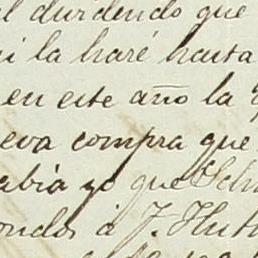 el dividendo que
ni la haré hasta
en este año la
eva compra que
abia yo que Sch
ondos á J. Hut